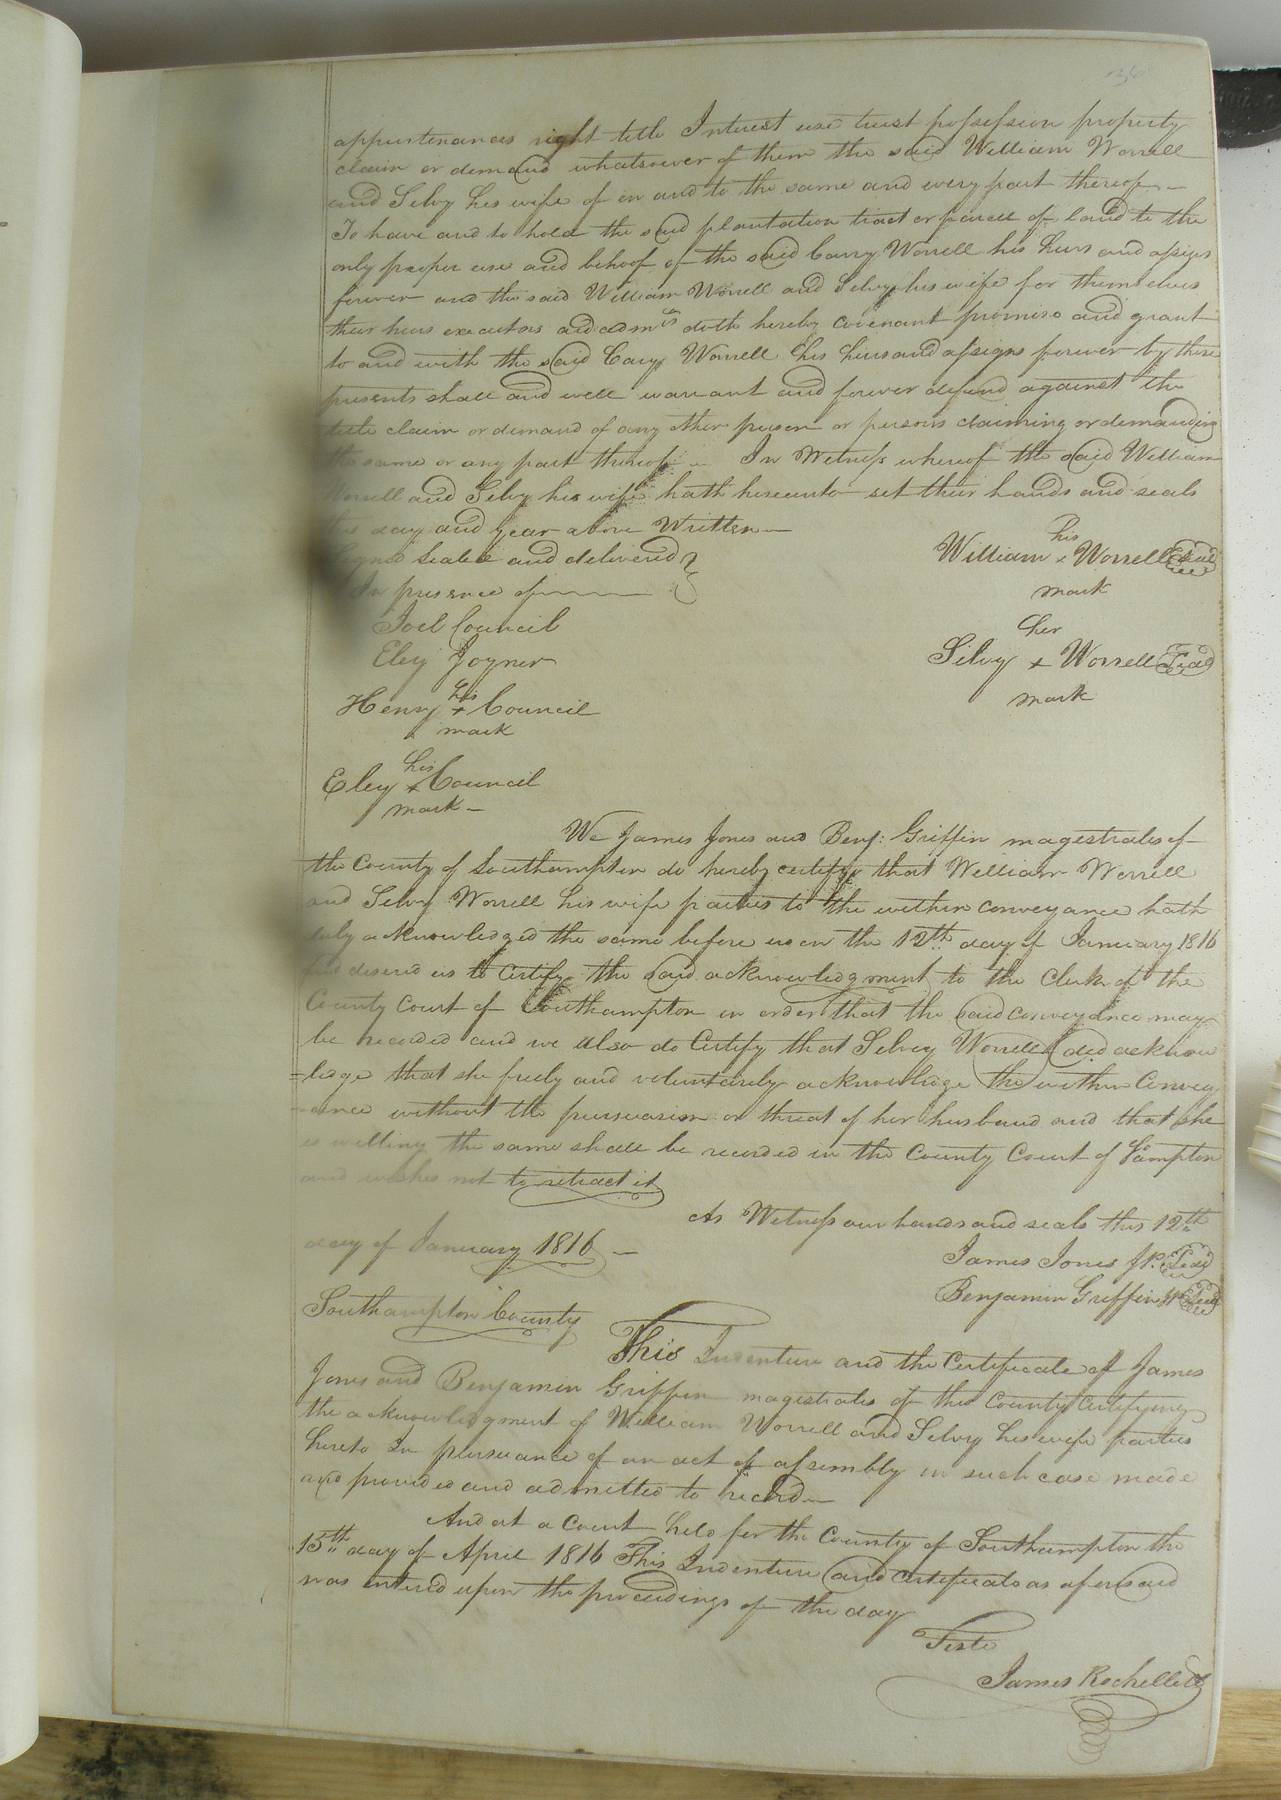 appurtenances right title Interest use trust possession property
claim or demand whatsoever of them the said William Worrell
and Silvy his wife of in and to the same and every part thereof —
To have and to hold the said plantation tract or parcell of land to the
only proper use and behoof of the said Carry Worrell his heirs and assigns
forever and the said William Worrell and Silvy his wife for themselves
their heirs executors and admrs doth hereby covenant promise and grant
to and with the said Cary Worrell his heirs and assigns forever by these
presents shall and well warrant and forever defend against the
title claim or demand of any other person or persons claiming or demanding
the same or any part thereof — In Witness whereof the said William
Worrell and Silvy his wife hath hereunto set their hands and seals
this day and year above Written —
Signed Sealed and delivered }
In presence of —
William his x mark Worrell Seal
Joel Council
Eley Joyner
Silvy her x mark Worrell Seal
Henry his x mark Council
Eley his x mark Council
We James Jones and Benj: Griffin magestrates of
the County of Southampton do hereby certify that William Worrell
and Silvy Worrell his wife parties to the within conveyance hath
duly acknowledged the same before us on the 12th day of January 1816
and desired us to Certify the said acknowledgment to the Clerk of the
County Court of Southampton in order that the said conveyance may
be recorded and we also do Certify that Silvey Worrell did acknow
=ledge that she freely and voluntarely acknowledge the within Convey
ance without the pursuasion or threat of her husband and that she
is willing the same shall be recorded in the County Court of Sampton
and wishes not to retract it
As Witness our hands and seals this 12th
day of January 1816 —
James Jones J.P. Seal
Benjamin Griffin JP Seal
Southampton County
This Indenture and the Certificate of James
Jones and Benjamin Griffin magestrates of this County Certifying
the acknowledgment of William Worrell and Silvy his wife parties
hereto In pursuance of an act of assembly in such case made
and provided and admitted to record —
And at a Court held for the County of Southampton the
15th day of April 1816 This Indenture and certificate as aforesaid
was entered upon the proceedings of the day
Teste
James Rochelle CC